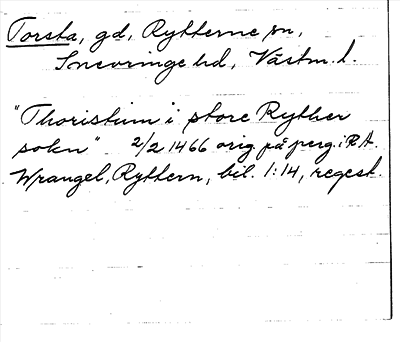 Torsta, gd, Rytterne sn,
Snevringe hd, Västm. l.
"Thoristum" i store Ryther
sokn" 2/2 1466 orig på perg. i RA.
Wrangel, Ryttern, bil. 1:14, regest.